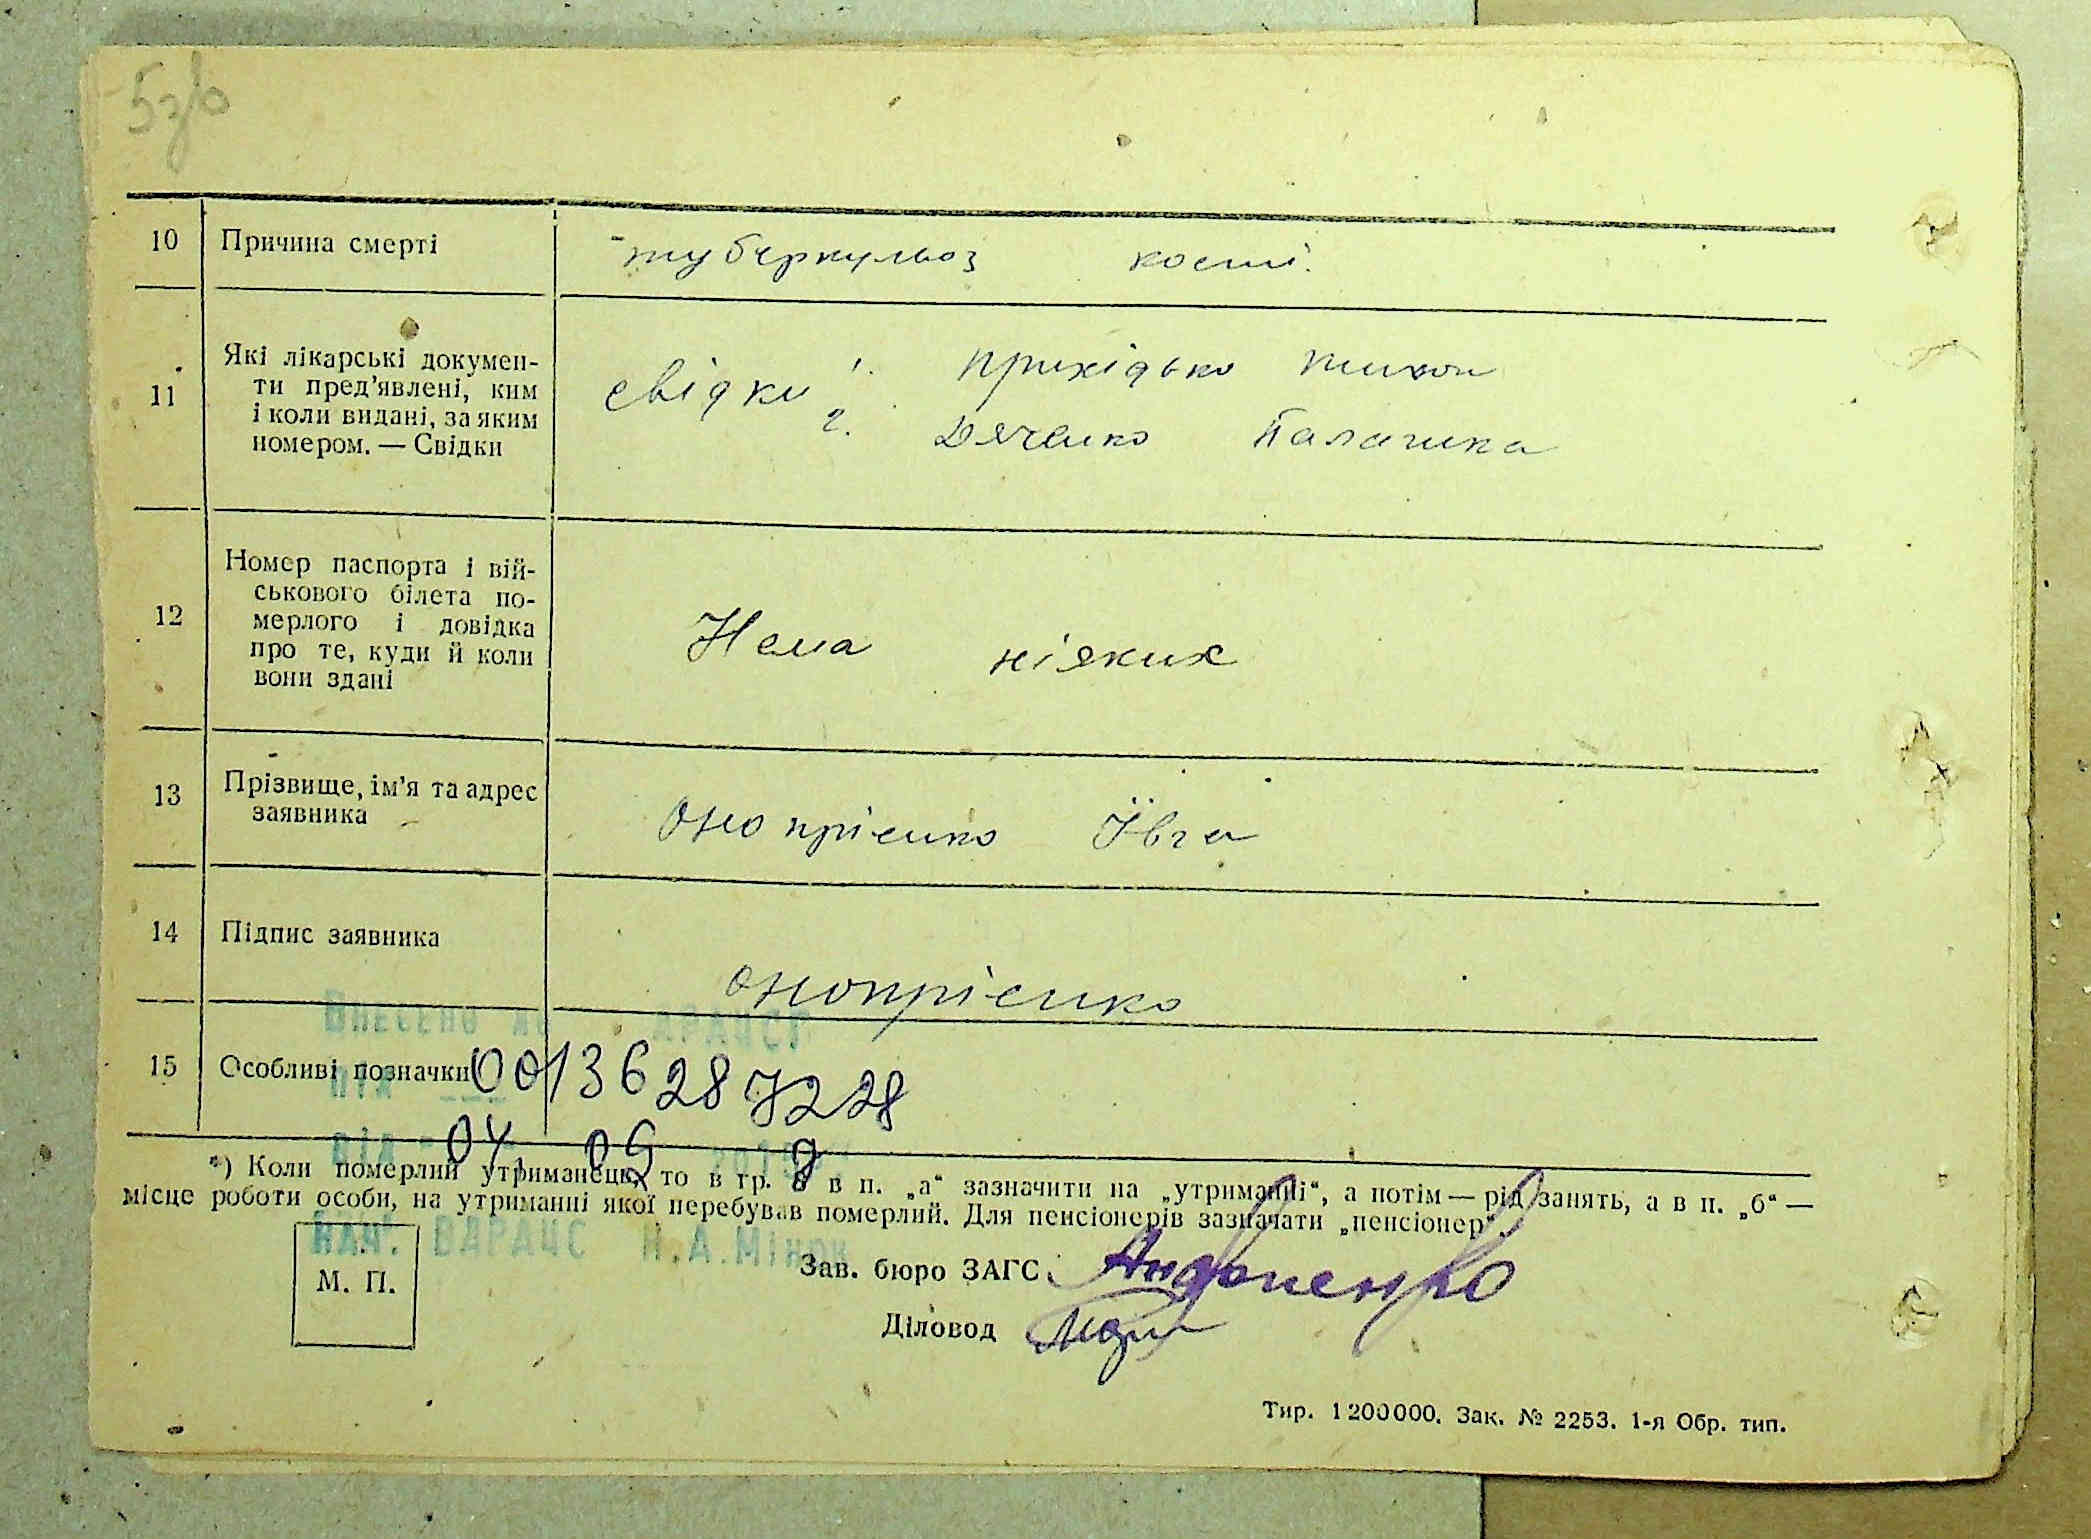 5зв
10 Причина смерті туберкульоз кости.
11 Які лікарські докумен-
ти пред’явлені, ким
і коли видані, за яким
номером. — Свідки
свідки 1. Прихідько Тихон
2. Дяченко Палашка
12 Номер паспорта і вій-
ськового білета по-
мерлого і довідка
про те, куди й коли
вони здані
Нема ніяких
13 Прізвище, ім’я та адрес
заявника
Онопрієнко Ївга
14 Підпис заявника
Онопрієнко
Внесено до ДРАЦСГ
15 Особливі позначки 00136287228
від 04 09
*) Коли померлий утриманець, то в гр. 8 в п. „а“ зазначити на „утриманні“, а потім — рід занять, а в п. „б“ —
місце роботи особи, на утриманні якої перебував померлий. Для пенсіонерів зазначати „пенсіонер“.
Нач. ВДРАЦС Н.А.Мінок
М. П.
Зав. бюро ЗАГС
Діловод
Тир. 1200000. Зак. № 2253. 1-я Обр. тип.